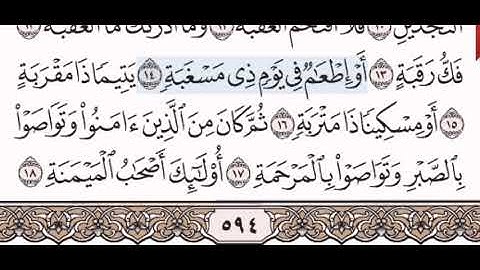 النجدين ١٠ فلا اقتحم العقبة ١١ وما أدرىك ما العقبة ١٢
فَكُّ رَقَبَةٍ ١٣ أَوْ إِطْعَٰمٌ فِى يَوْمٍ ذِى مَسْغَبَةٍ ١٤ يَتِيمًا ذَا مَقْرَبَةٍ
١٥ أَوْ مِسْكِينًا ذَا مَتْرَبَةٍ ١٦ ثُمَّ كَانَ مِنَ ٱلَّذِينَ ءَامَنُوا۟ وَتَوَاصَوْا۟
بِٱلصَّبْرِ وَتَوَاصَوْا۟ بِٱلْمَرْحَمَةِ ١٧ أُو۟لَٰٓئِكَ أَصْحَٰبُ ٱلْمَيْمَنَةِ ١٨
٥٩٤